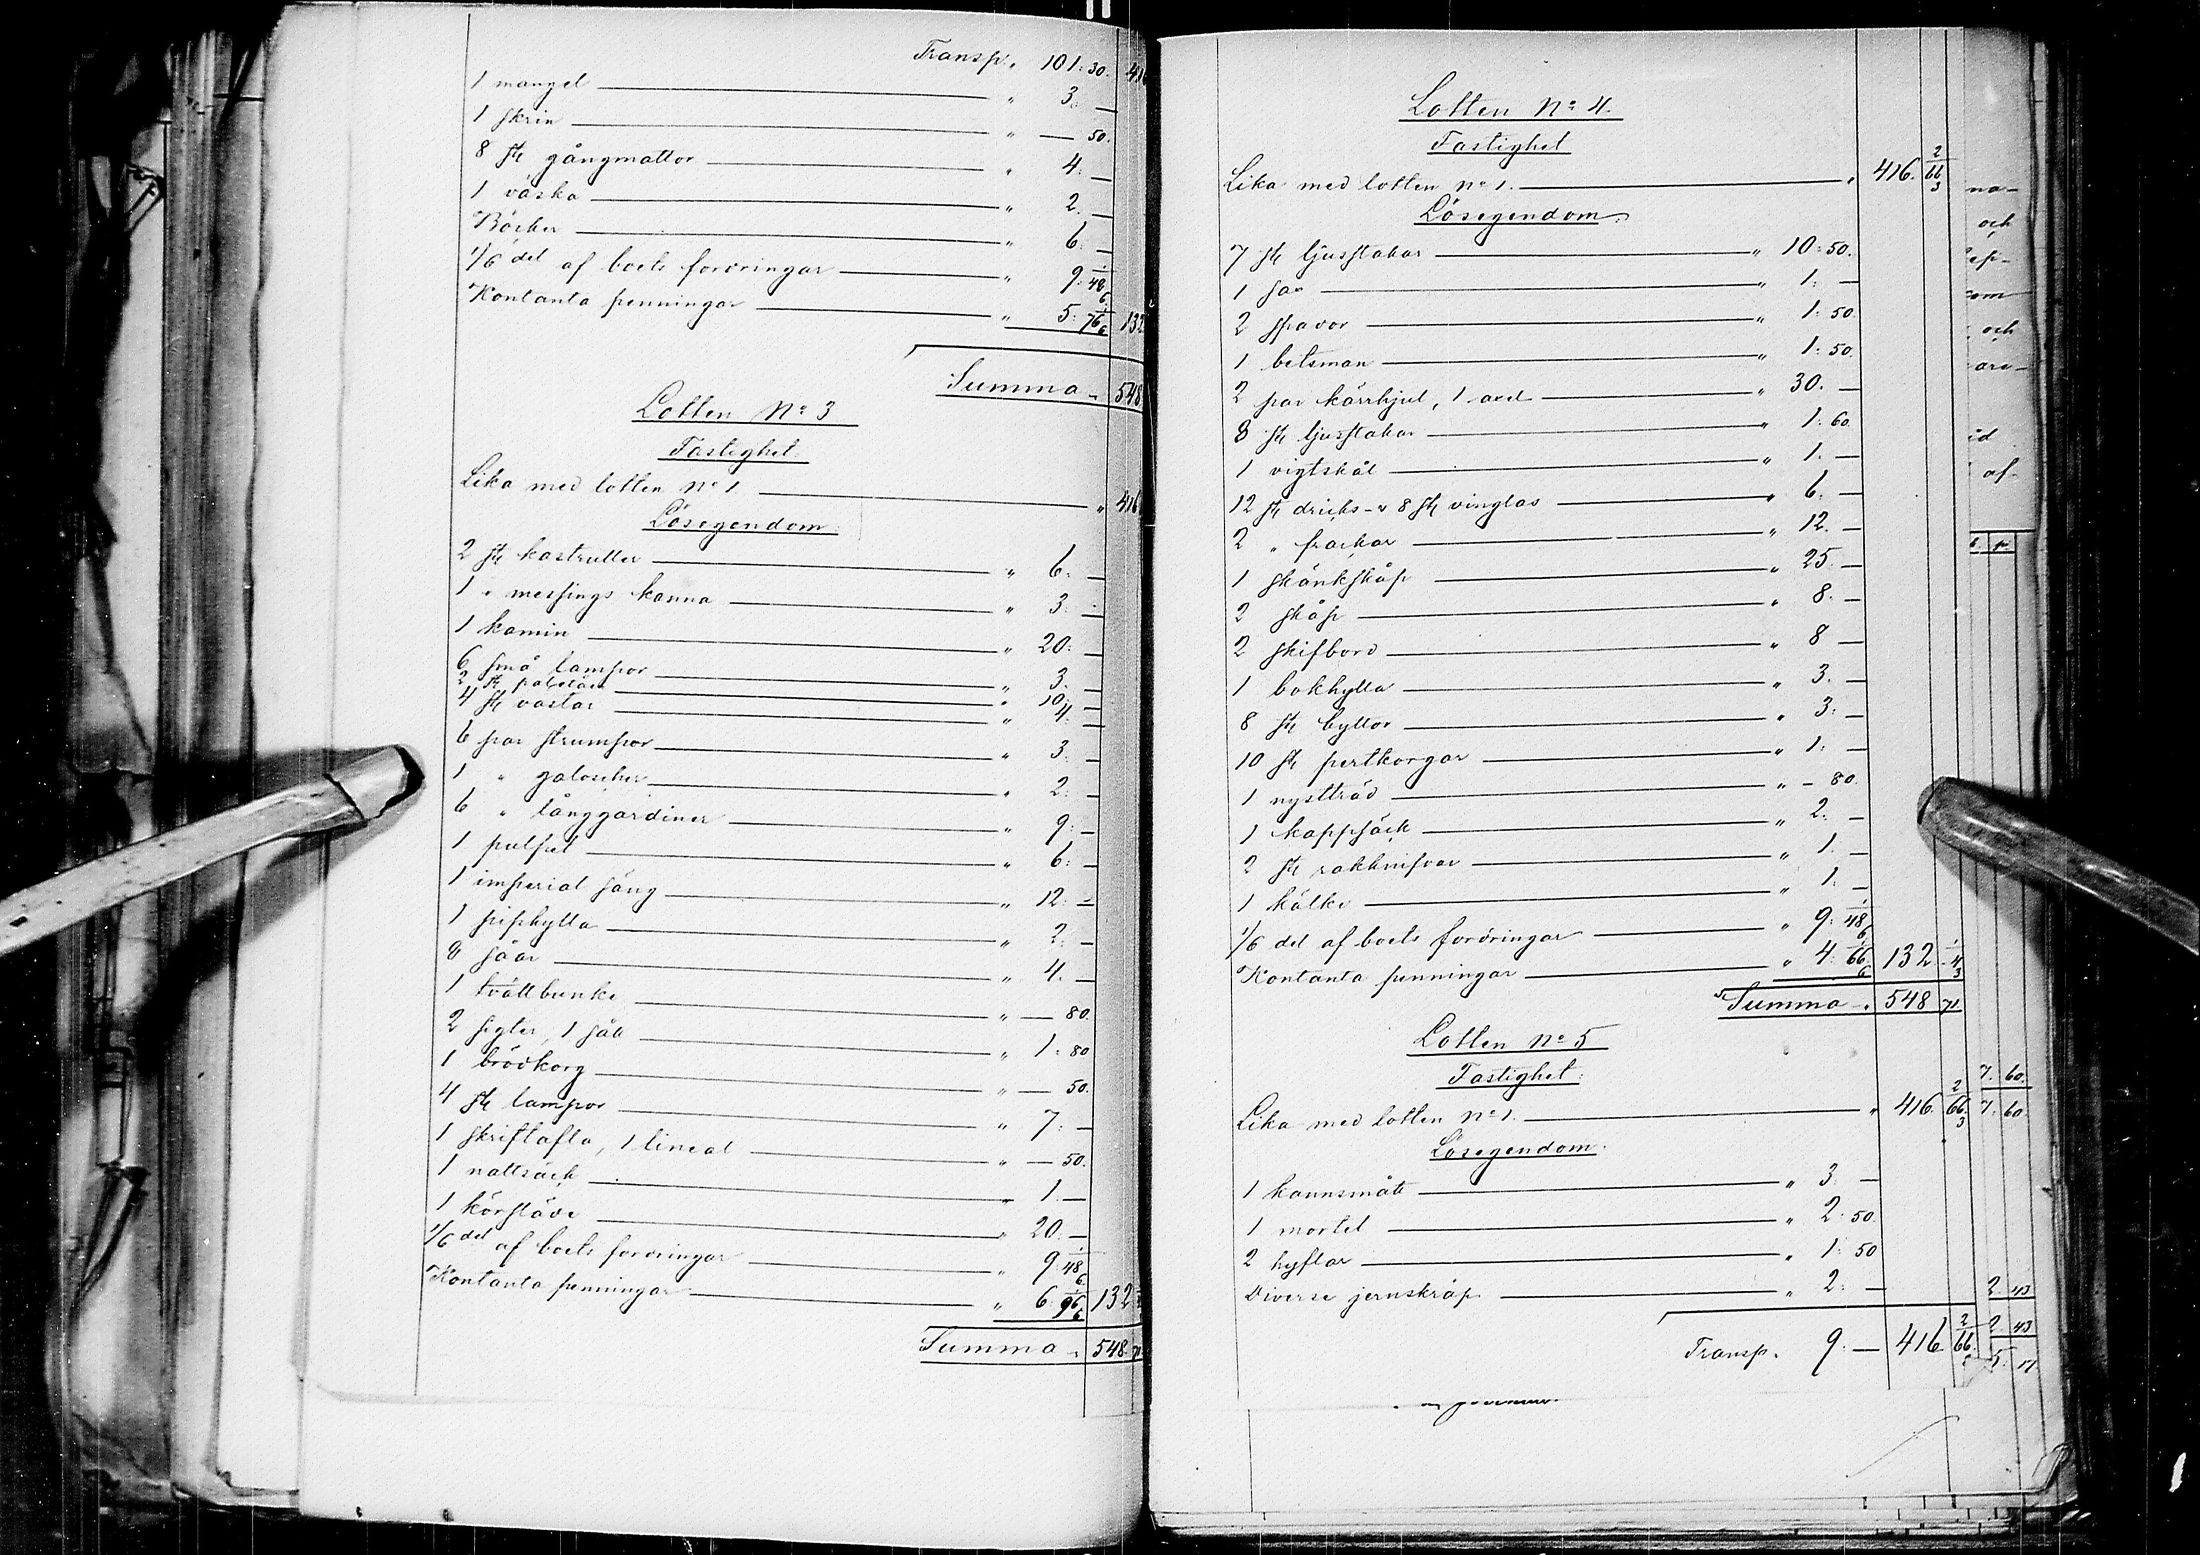 Transp. 101. 30. 416
1 mangel " 3. —
1 skrin " — 50.
8 st gångmattor " 4. —
1 väska " 2. —
Böcker " 6. —
1/6 del af boets fordringar " 9. 48 1/6
Kontanta penningar " 5. 76 1/6 132
Summa " 548
Lotten No 3
Fastighet
Lika med lotten No 1 " 416
Lösegendom
2 st kastruller " 6. —
1 " messings kanna " 3. —
1 kamin " 20. —
6 små lampor " 3. —
2 st " 10. —
4 st vastar " 4. —
6 par strumpor " 3. —
1 " galoscher " 2. —
6 " långgardiner " 9. —
1 pulpet " 6. —
1 imperial säng " 12. —
1 piphylla " 2. —
8 såar " 4. —
1 tvättbunke " — 80.
2 sigter, 1 såll " 1. 80
1 brödkorg " — 50.
4 st lampor " 7. —
1 skriftafla, 1 lineal " — 50.
1 nattsäck " 1. —
1 körsläde " 20. —
1/6 del af boets fordringar " 9. 48 1/6
Kontanta penningar " 6. 96 1/6 132
Summa " 548. 71
Lotten No 4.
Fastighet
Lika med lotten No 1. " 416. 66 2/3
Lösegendom
7 st ljusstakar " 10. 50.
1 sax " 1. —
2 spador " 1. 50.
1 betsman " 1. 50.
2 par kärrhjul, 1 axel " 30. —
8 st ljusstakar " 1. 60
1 vigtskål " 1. —
12 st dricks- o 8 st vinglas " 6. —
2 " frackar " 12. —
1 skänkskåp " 25. —
2 skåp " 8. —
2 skifbord " 8 —
1 bokhylla " 3. —
8 st byttor " 3. —
10 st pertkorgar " 1. —
1 nystträd " — 80.
1 kappsäck " 2. —
2 st rakknifvar " 1. —
1 kälke " 1. —
1/6 del af boets fordringar " 9. 48 1/6
Kontanta penningar " 4. 66 1/6 132. 4 1/3
Summa " 548 71
Lotten No 5
Fastighet
Lika med lotten No 1. " 416. 66 2/3
Lösegendom
1 kannsmått " 3. —
1 mortel " 2. 50.
2 hyflar " 1. 50
Diverse jernskräp " 2. —
Transp. 9. — 416 66 2/3
na-
och
och
id
af-
7. 60.
7. 60.
2 43
2 43
5. 17